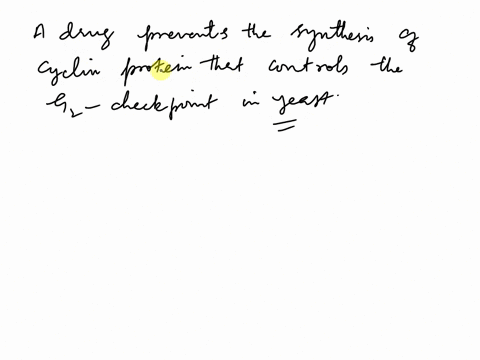 A drug prevents the synthesis of
cyclin protein that controls the
G₂ - checkpoint in yeast.